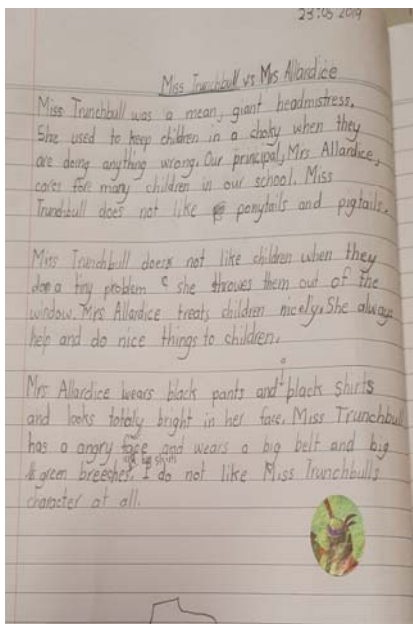 23:05 2019
Miss Trunchbull vs Mrs Allardice
Miss Trunchbull was a mean, giant headmistress.
She used to keep children in a choky when they
are doing anything wrong. Our principal, Mrs Allardice,
cares fore many children in our school. Miss
Trunchbull does not like ponytails and pigtails.
Miss Trunchbull does not like children when they
do a tiny problem she throwes them out of the
window. Mrs Allardice treats children nicely. She always
help and do nice things to children.
Mrs Allardice wears black pants and black shirts
and looks totaly bright in her face. Miss Trunchbull
has a angry face and wears a big belt and big
green breeches. I do not like Miss Trunchbulls
character at all.